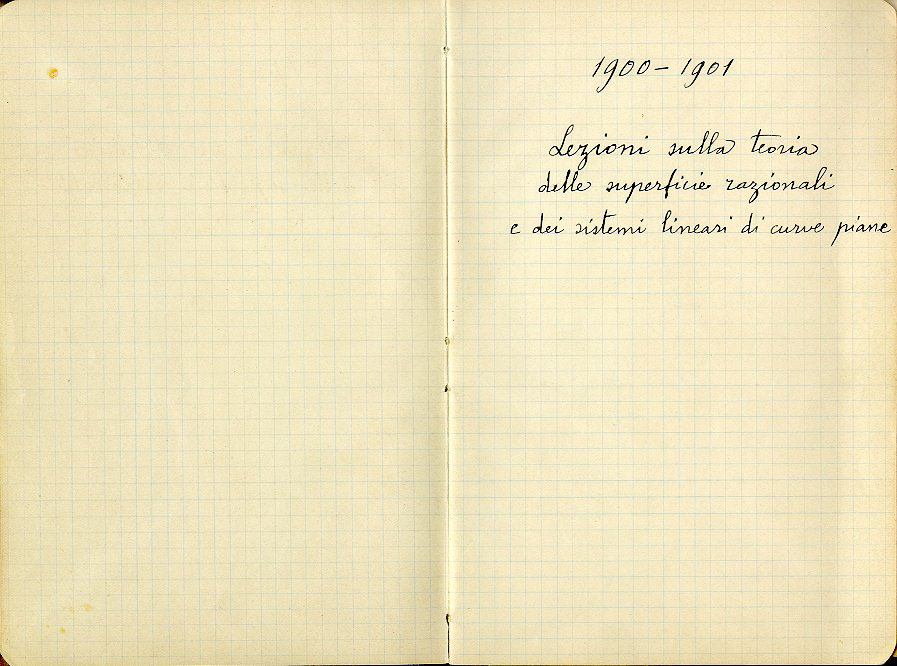 1900-1901
Lezioni sulla teoria
delle superficie razionali
e dei sistemi lineari di curve piane